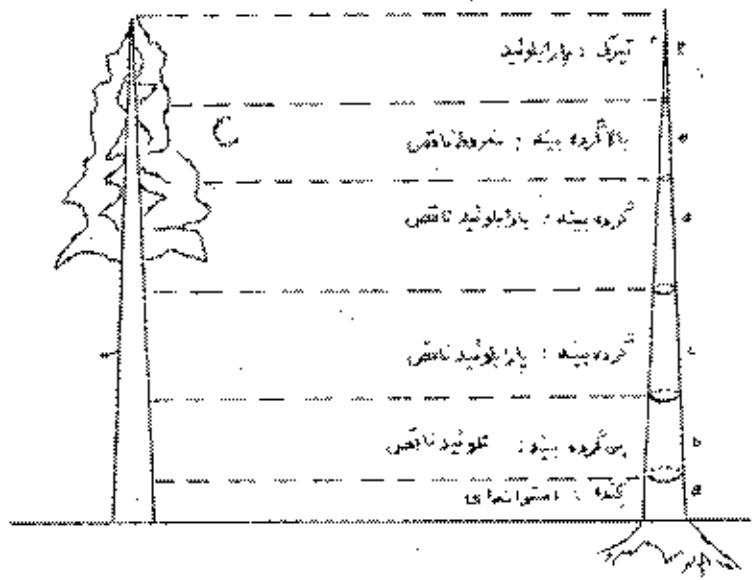 تیرک : پارابلوئید
بالا گرده بینه : مخروط ناقص
گرده بینه : پارابلوئید ناقص
گرده بینه : پارابلوئید ناقص
بن گرده بینه : نلوئید ناقص
کنده : استوانه‌ای
e
d
c
b
a